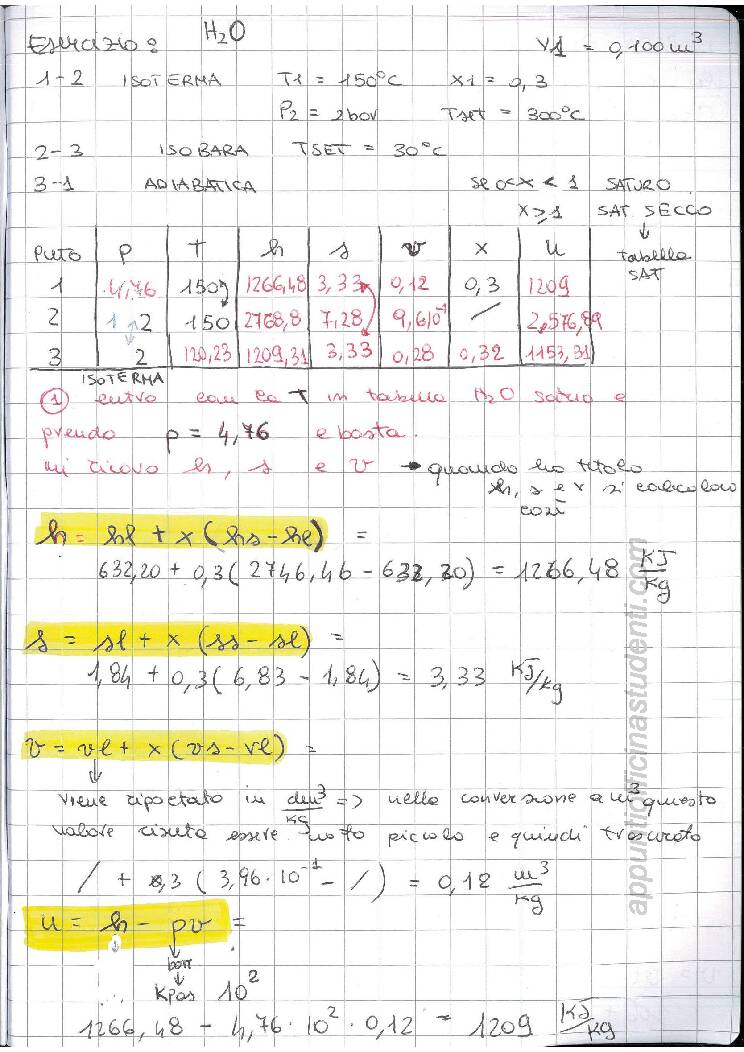 Esercizio: H₂O V1 = 0,100 m³
1-2 ISOTERMA T1 = 150°C X1 = 0,3
P2 = 2 bar Tset = 300°C
2-3 ISOBARA TSET = 30°C
3-1 ADIABATICA se 0<x<1 SATURO
x⩾1 SAT SECCO
↓
tabella
SAT
PUTO P T h s v x u
1 4,76 150 1266,48 3,33 0,12 0,3 1209
2 1 2 150 2768,8 7,28 9,6 10⁻¹ / 2,576,89
3 2 120,23 1209,31 3,33 0,28 0,32 1153,31
ISOTERMA
① entro con la T in tabella H₂O saturo e
prendo p = 4,76 e basta.
mi ricavo h, s e v → quando ho titolo
h, s e v si calcolano
così
h = hl + x (hs - hl) =
632,20 + 0,3 ( 2746,46 - 632,20) = 1266,48 KJ/Kg
s = sl + x (ss - sl) =
1,84 + 0,3 ( 6,83 - 1,84) = 3,33 KJ/Kg
v = vl + x (vs - vl) =
↓
viene riportato in dm³/Kg => nella conversione a m³ questo
valore risulta essere molto piccolo e quindi trascurato
/ + 0,3 ( 3,96·10⁻¹ - /) = 0,12 m³/Kg
u = h - pv =
↓
bar
↓
Kpas 10²
1266,48 - 4,76·10²·0,12 = 1209 KJ/Kg
appuntiofficinastudenti.com